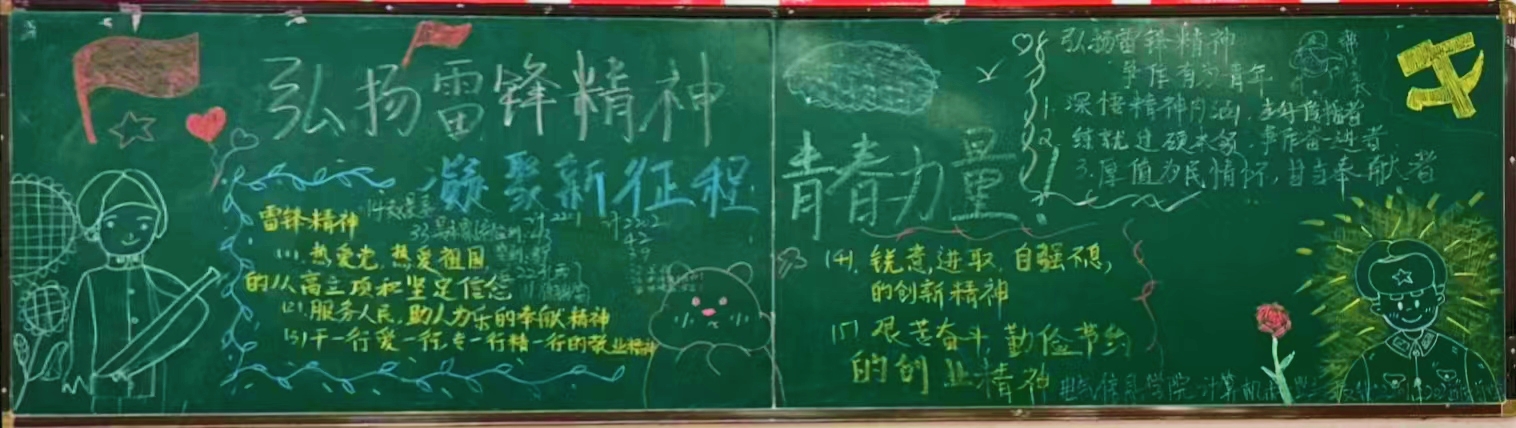 弘扬雷锋精神
凝聚新征程
青春力量
雷锋精神
(1).热爱党,热爱祖国
的从高立顶和坚定信念
(2).服务人民,助人为乐的奉献精神
(3)干一行爱一行,专一行精一行的敬业精神
(4).锐意进取,自强不息,
的创新精神
艰苦奋斗,勤俭节约
的创业精神
弘扬雷锋精神
争作有为青年
1.深悟精神内涵,
2.练就过硬本领,争作奋进者
3.厚值为民情怀,甘当奉献者
信息学院